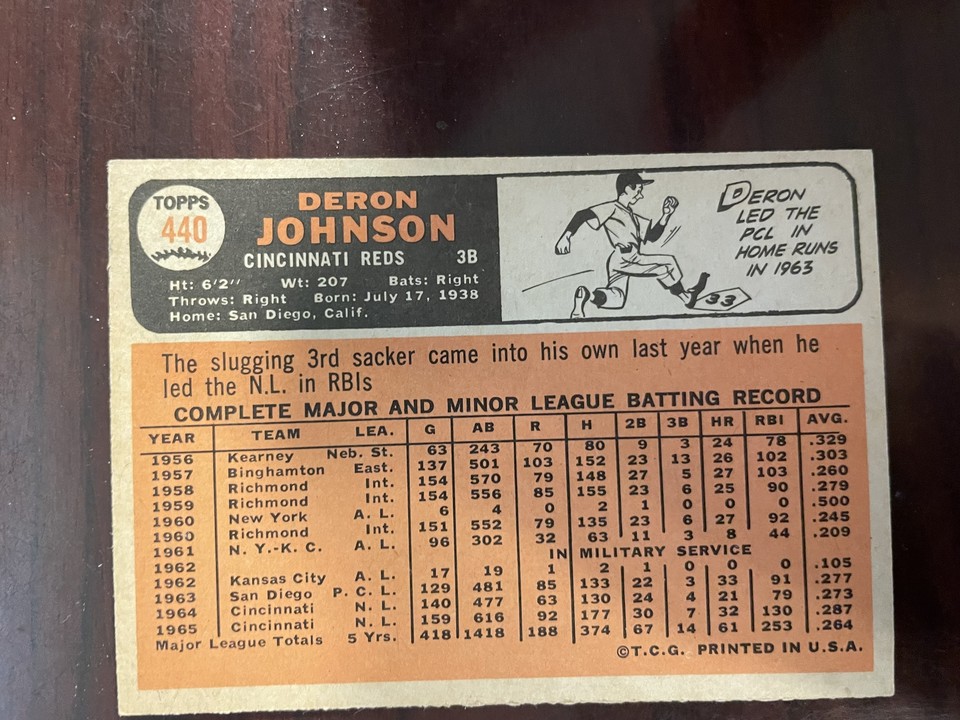 TOPPS
440
DERON
JOHNSON
CINCINNATI REDS 3B
Ht: 6'2" Wt: 207 Bats: Right
Throws: Right Born: July 17, 1938
Home: San Diego, Calif.
DERON
LED THE
PCL IN
HOME RUNS
IN 1963
33
The slugging 3rd sacker came into his own last year when he
led the N.L. in RBIs
COMPLETE MAJOR AND MINOR LEAGUE BATTING RECORD
YEAR TEAM LEA. G AB R H 2B 3B HR RBI AVG.
1956 Kearney Neb. St. 63 243 70 80 9 3 24 78 .329
1957 Binghamton East. 137 501 103 152 23 13 26 102 .303
1958 Richmond Int. 154 570 79 148 27 5 27 103 .260
1959 Richmond Int. 154 556 85 155 23 6 25 90 .279
1960 New York A. L. 6 4 0 2 1 0 0 0 .500
1960 Richmond Int. 151 552 79 135 23 6 27 92 .245
1961 N. Y.-K. C. A. L. 96 302 32 63 11 3 8 44 .209
1962 IN MILITARY SERVICE
1962 Kansas City A. L. 17 19 1 2 1 0 0 0 .105
1963 San Diego P. C. L. 129 481 85 133 22 3 33 91 .277
1964 Cincinnati N. L. 140 477 63 130 24 4 21 79 .273
1965 Cincinnati N. L. 159 616 92 177 30 7 32 130 .287
Major League Totals 5 Yrs. 418 1418 188 374 67 14 61 253 .264
©T.C.G. PRINTED IN U.S.A.